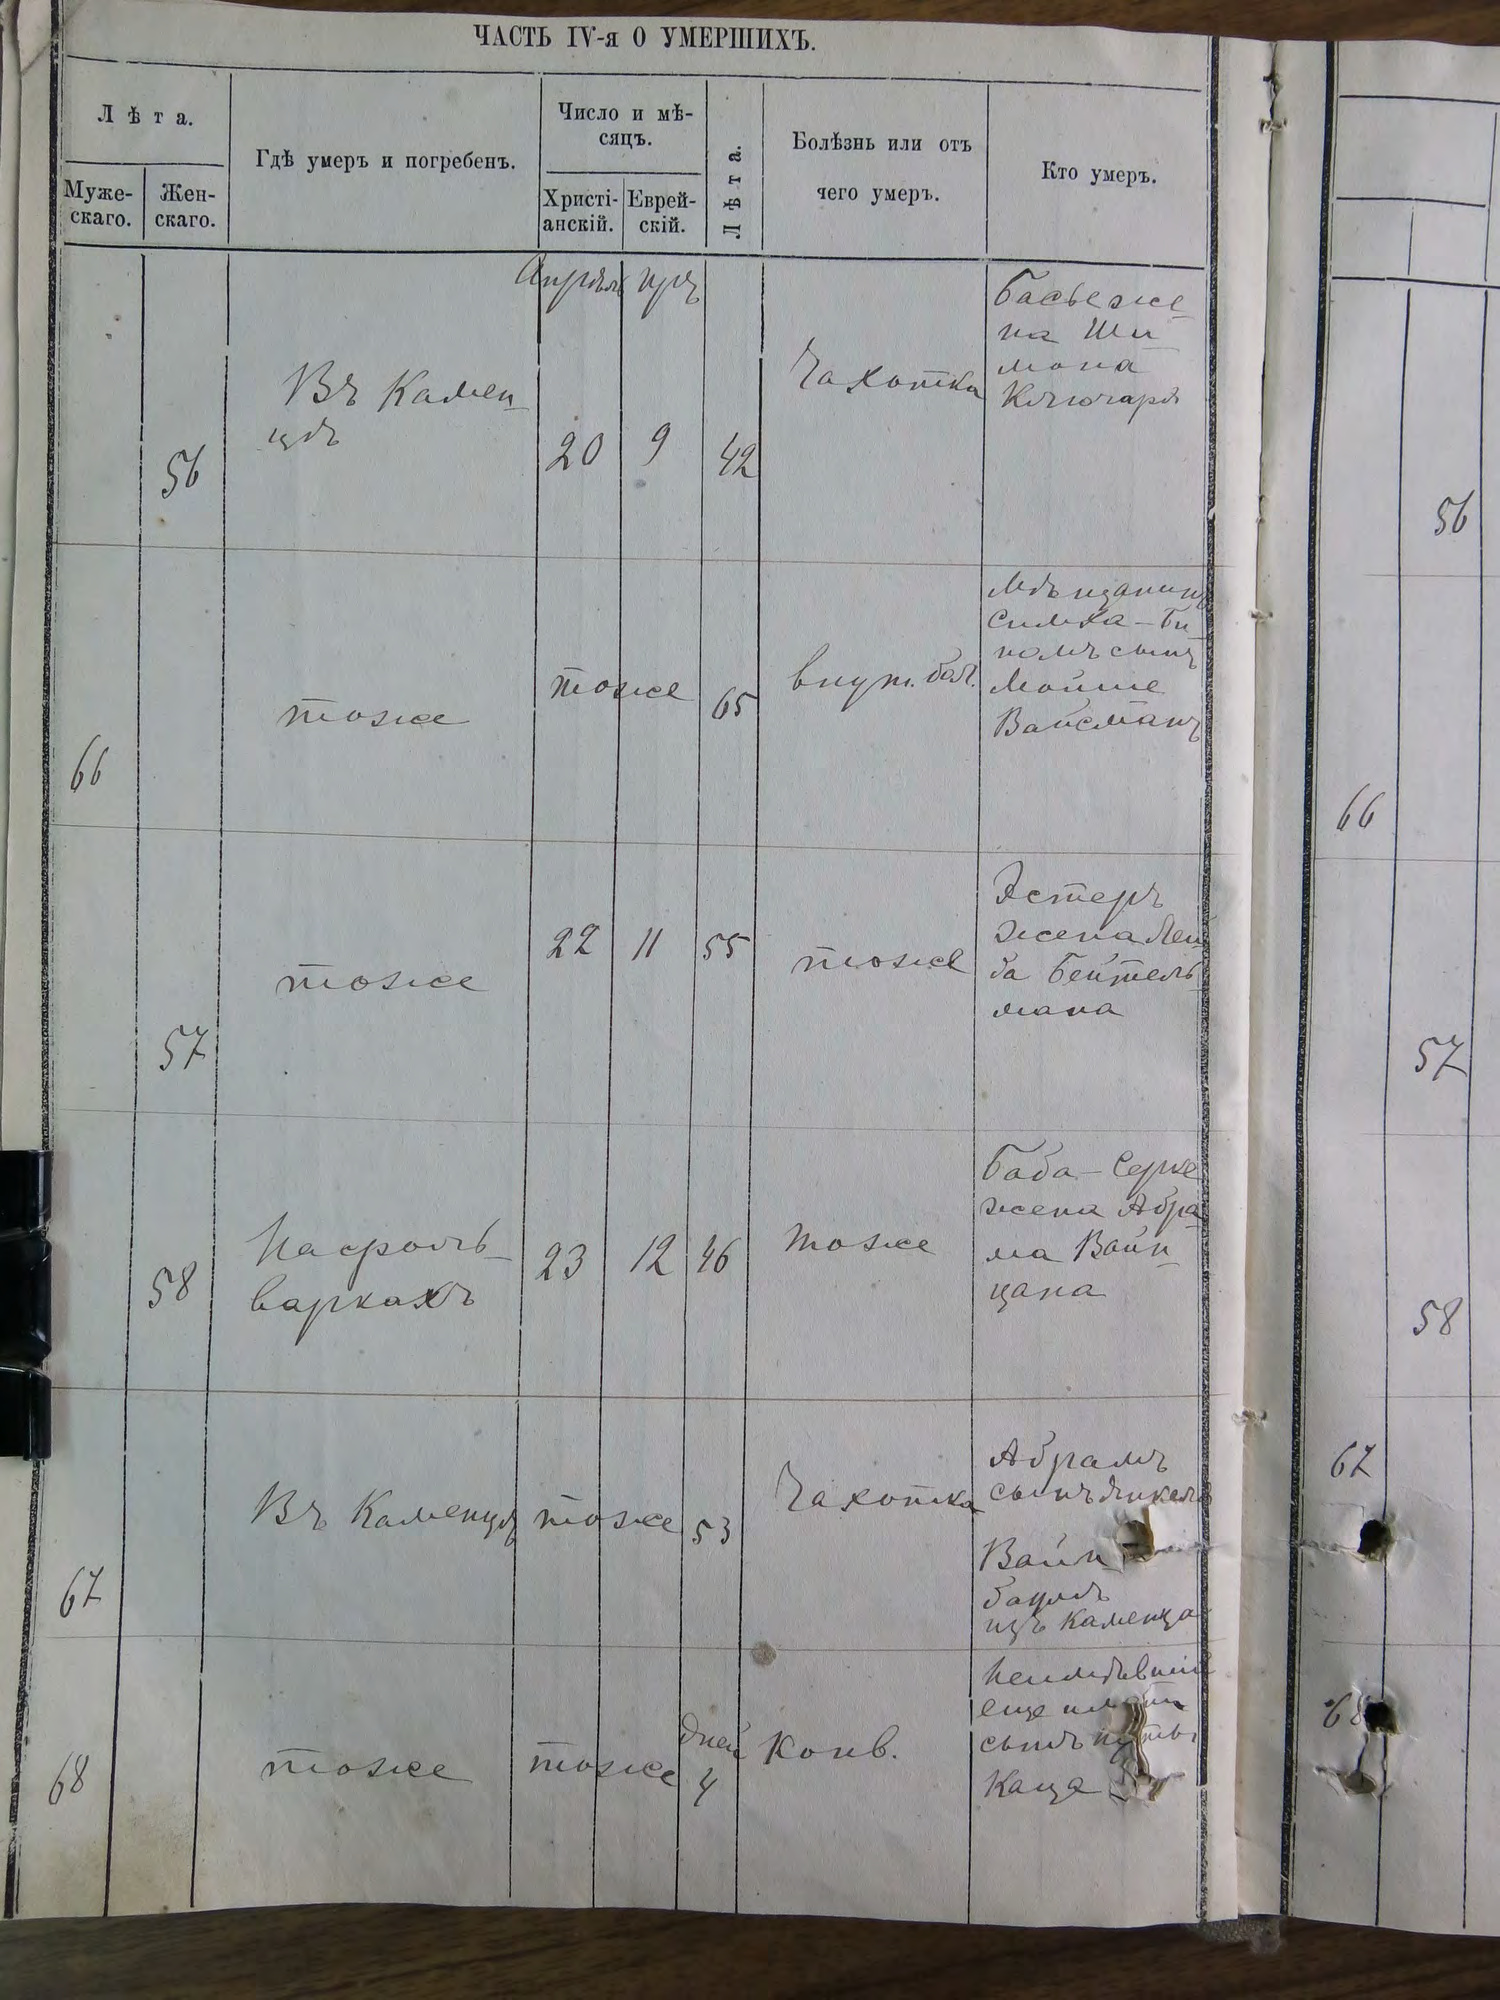 ЧАСТЬ IV-я О УМЕРШИХЪ.
Лѣта.
Муже-
скаго.
Жен-
скаго.
Гдѣ умеръ и погребенъ.
Число и мѣ-
сяцъ.
Христі-
анскій.
Еврей-
скій.
Лѣта.
Болѣзнь или отъ
чего умеръ.
Кто умеръ.
Апрѣль
56
Въ Камен-
цѣ
20
9
42
Чахотка
Басье же-
на Ши-
мона
Ключаря
56
66
тоже
тоже
65
внут. бол.
Мѣщанинъ
Симха-Би-
номъ сынъ
Мойше
Вайсманъ
66
57
тоже
22
11
55
тоже
Эстеръ
жена Лей-
ба Бейтель-
мана
57
58
На фоль-
варкахъ
23
12
46
тоже
Баба-Серке
жена Абра-
ма Вайн-
цана
58
67
Въ Каменцѣ
тоже
53
Чахотка
Абрамъ
сынъ
Вайн
баумъ
изъ Каменца
67
68
тоже
тоже
дней
4
конв.
Неимѣвшій
еще
сынъ
Каца
68